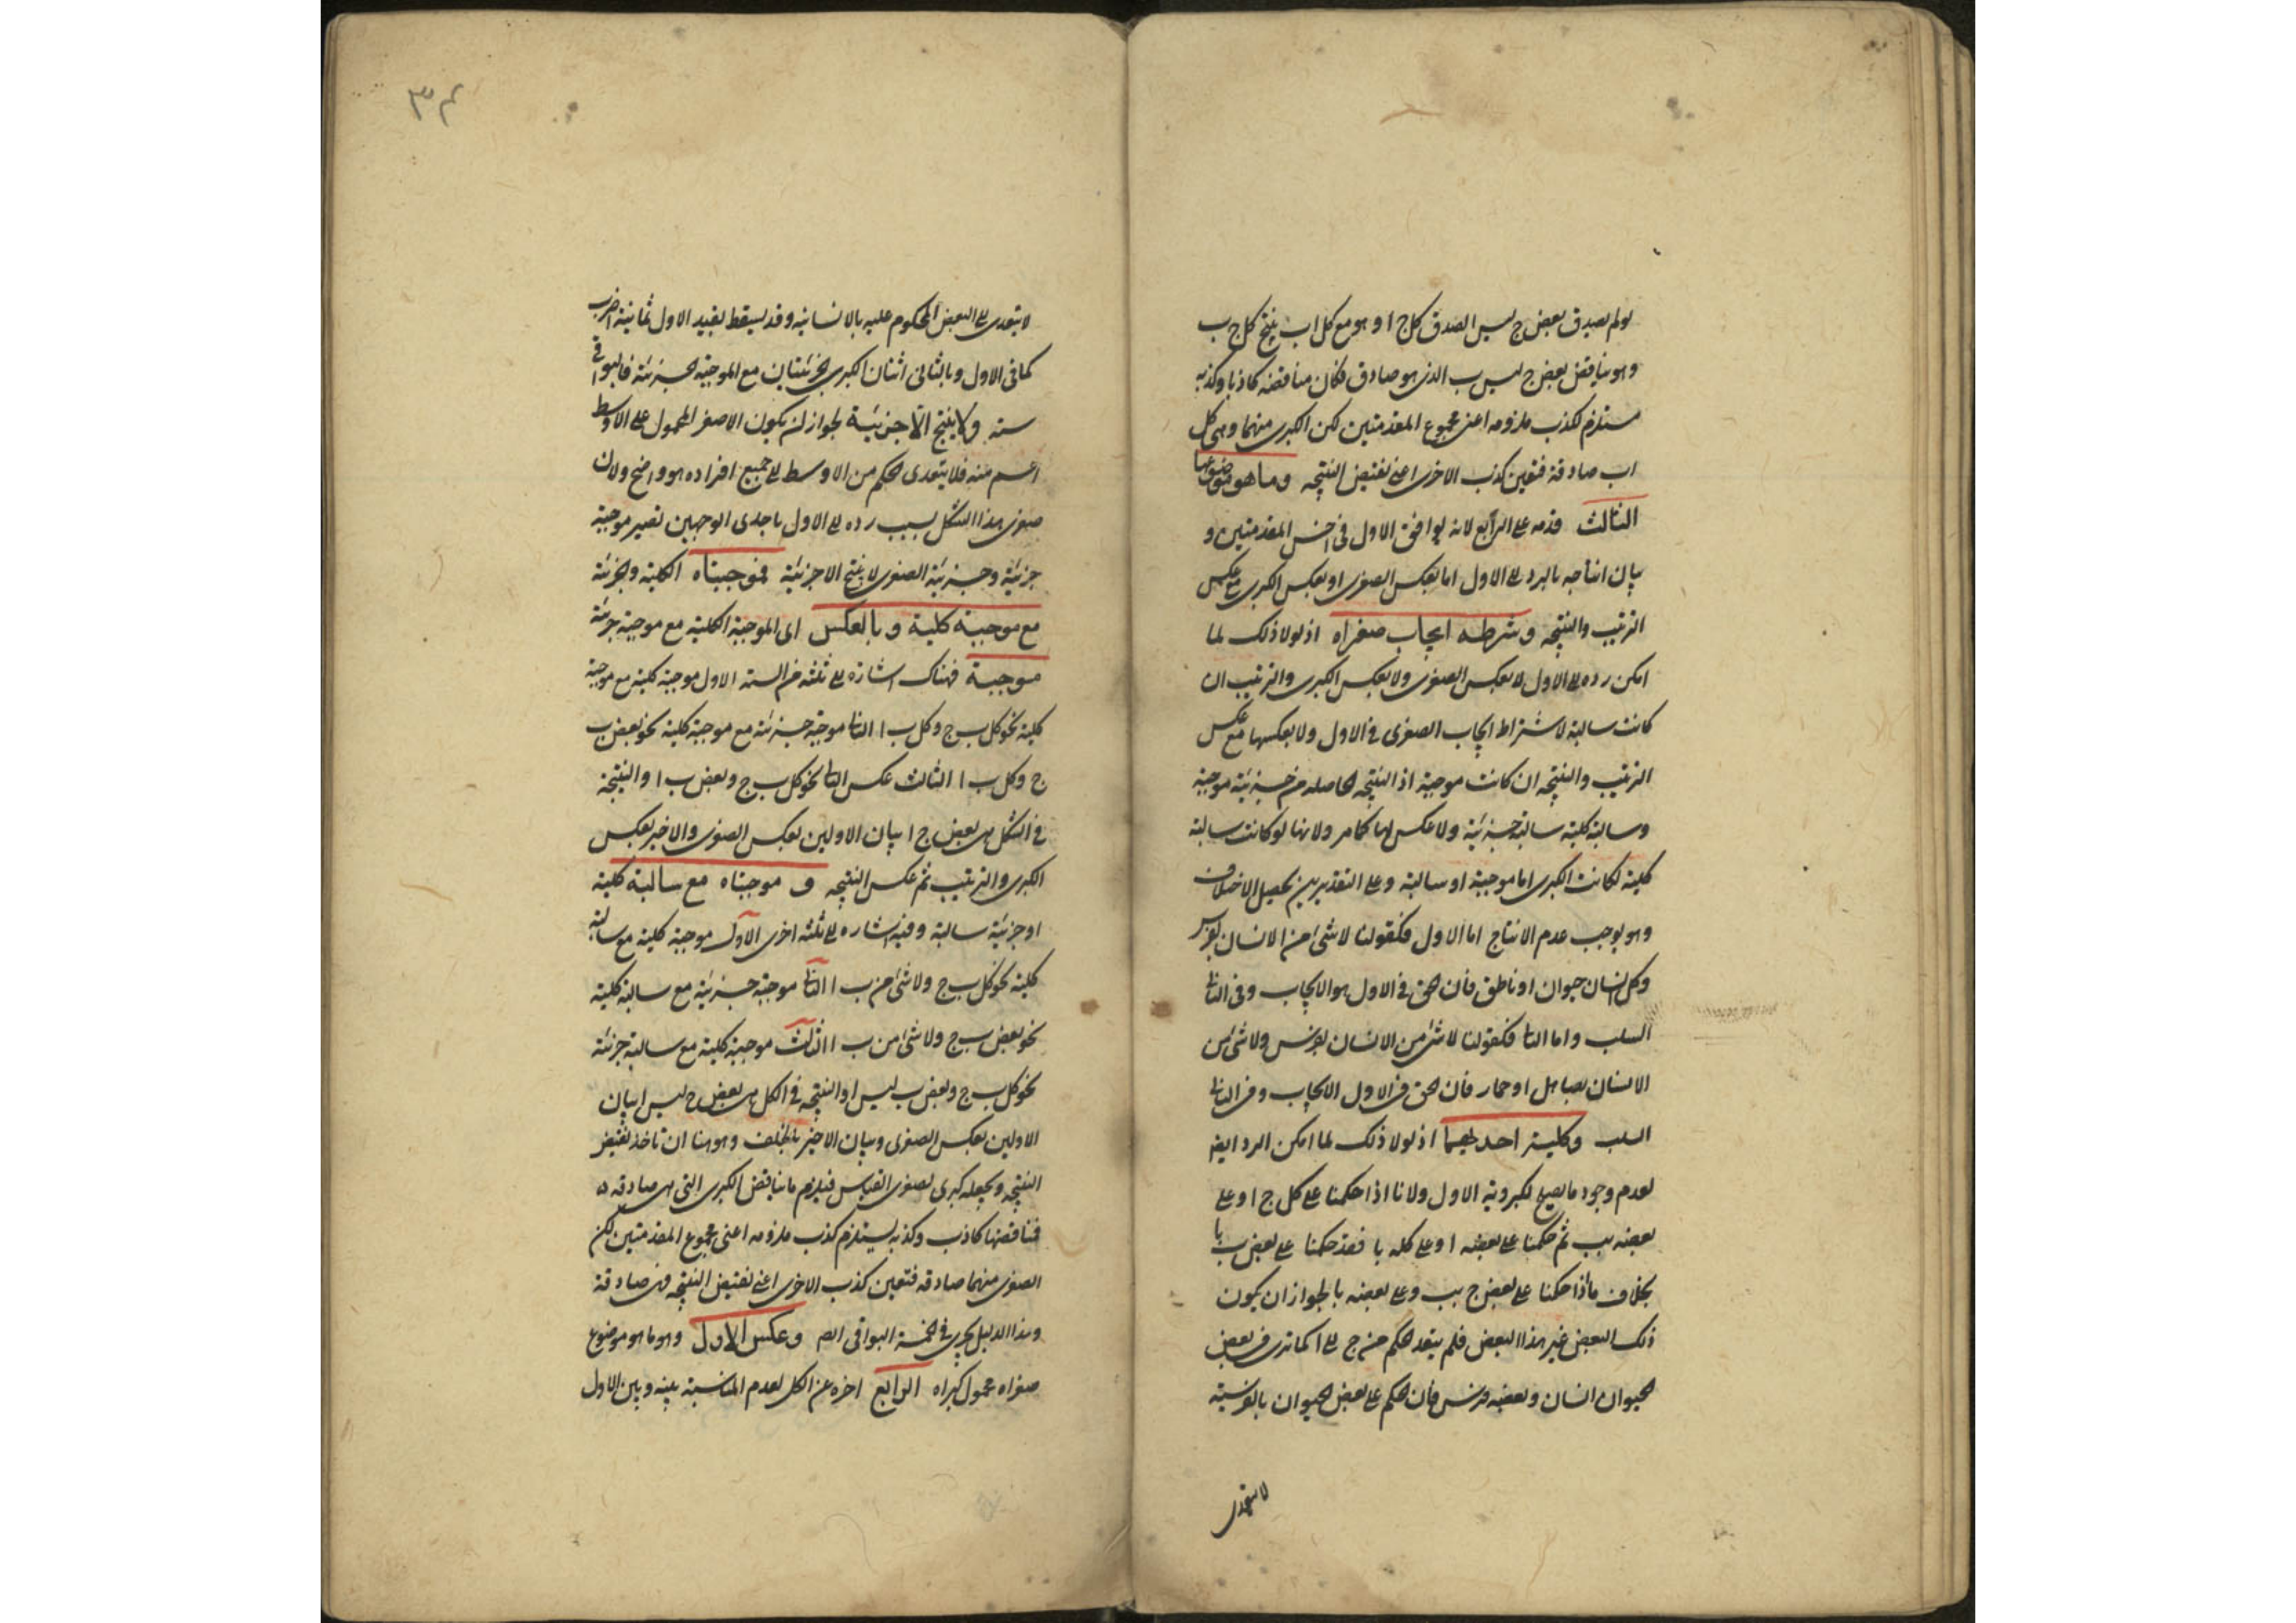 لو لم يصدق بعض ج ليس ا لصدق كل ج ا وهو مع كل ا ب ينتج كل ج ب
وهو يناقض بعض ج ليس ب الذى هو صادق فكان مناقضه كاذبا وكذبه
مستلزم لكذب ملزومه اعنى مجموع المقدمتين لكن الكبرى منهما وهى كل
ا ب صادقة فتعين كذب الاخرى اعنى نقيض النتيجه وما هو موضوعها
الثالث قدمه على الرابع لانه يوافق الاول فى اخس المقدمتين و
بيان انتاجه بالرد الى الاول اما بعكس الصغرى او بعكس الكبرى مع عكس
الترتيب والنتيجه وشرطه ايجاب صغراه اذ لولا ذلك لما
امكن رده الى الاول لا بعكس الصغرى ولا بعكس الكبرى والترتيب ان
كانت سالبة لاشتراط ايجاب الصغرى فى الاول ولا بعكسها مع عكس
الترتيب والنتيجه ان كانت موجبة اذ النتيجه الحاصله من جزئية موجبة
وسالبة كلية سالبة جزئية ولا عكس لها كما مر ولانها لو كانت سالبة
كلية لكانت الكبرى اما موجبة او سالبة وعلى التقديرين يحصل الاختلاف
وهو يوجب عدم الانتاج اما الاول فكقولنا لا شئ من الانسان بفرس
وكل انسان حيوان او ناطق فان الحق فى الاول هو الايجاب وفى الثانى
السلب واما الثانى فكقولنا لا شئ من الانسان بفرس ولا شئ من
الانسان بصاهل او حمار فان الحق فى الاول الايجاب وفى الثانى
السلب وكلية احديهما اذ لولا ذلك لما امكن الرد ايضا
لعدم وجود ما يصلح لكبروية الاول ولانا اذا حكمنا على كل ج ا وعلى
بعضه بب ثم حكمنا على بعضه ا وعلى كله با فقد حكمنا على بعض ب با
بخلاف ما اذا حكمنا على بعض ج بب وعلى بعضه با لجواز ان يكون
ذلك البعض غير هذا البعض فلم يتعد الحكم من ج الى ا كما ترى فى بعض
الحيوان انسان وبعضه فرس فان الحكم على بعض الحيوان بالفرسية
لا يتعدى
٣٤
لا يتعدى الى البعض المحكوم عليه بالانسانيه وقد يسقط بقيد الاول ثمانية اضرب
كما فى الاول وبالثانى اثنان الكبرى الجزئيتان مع الموجبة الجزئية فالبواقى
ستة ولا ينتج الا جزئية لجواز ان يكون الاصغر المحمول على الاوسط
اعم منه فلا يتعدى الحكم من الاوسط الى جميع افراده وهو واضح ولان
صغرى هذا الشكل بسبب رده الى الاول باحدى الوجهين تصير موجبة
جزئية وجزئية الصغرى لا ينتج الا جزئية فموجبتاه الكلية والجزئية
مع موجبة كلية وبالعكس اى الموجبة الكلية مع موجبة جزئية
موجبة فهناك اشارة الى ثلثة من الستة الاول موجبة كلية مع موجبة
كلية نحو كل ب ج وكل ب ا الثانى موجبة جزئية مع موجبة كلية نحو بعض ب
ج وكل ب ا الثالث عكس الثانى نحو كل ب ج وبعض ب ا والنتيجة
فى الشكل هى بعض ج ا بيان الاولين بعكس الصغرى والاخير بعكس
الكبرى والترتيب ثم عكس النتيجه و موجبتاه مع سالبة كلية
او جزئية سالبة وفيه اشارة الى ثلثة اخرى الاول موجبة كلية مع سالبة
كلية نحو كل ب ج ولا شئ من ب ا الثانى موجبة جزئية مع سالبة كلية
نحو بعض ب ج ولا شئ من ب ا الثالث موجبة كلية مع سالبة جزئية
نحو كل ب ج وبعض ب ليس ا والنتيجه فى الكل هى بعض ج ليس ا بيان
الاولين بعكس الصغرى وبيان الاخير بالخلف وهو هنا ان تأخذ نقيض
النتيجه وتجعله كبرى لصغرى القياس فيلزم ما يناقض الكبرى التى هى صادقه
فنناقضها كاذب وكذبه يستلزم كذب ملزومه اعنى مجموع المقدمتين لكن
الصغرى منهما صادقه فتعين كذب الاخرى اعنى نقيض النتيجه فهى صادقة
وهذا الدليل يجرى فى الخمسة البواقى ايضا وعكس الاول وهو ما هو موضوع
صغراه محمول كبراه الرابع اخره عن الكل لعدم المناسبة بينه وبين الاول